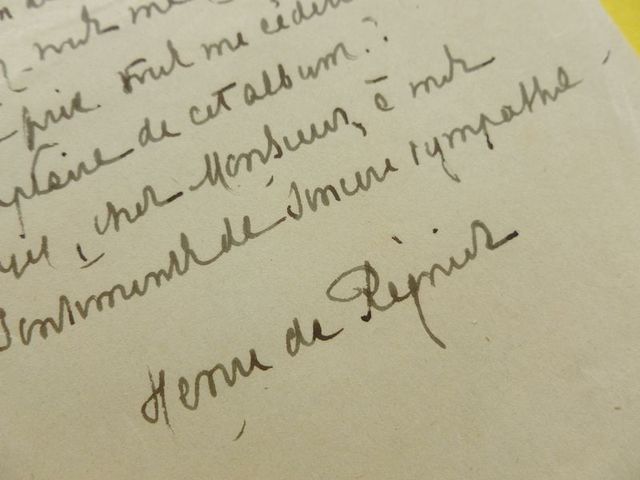 me
prix veut me céder
de cet album ?
cher Monsieur, à mes
sentiments de sincère sympathie
Henri de Régnier